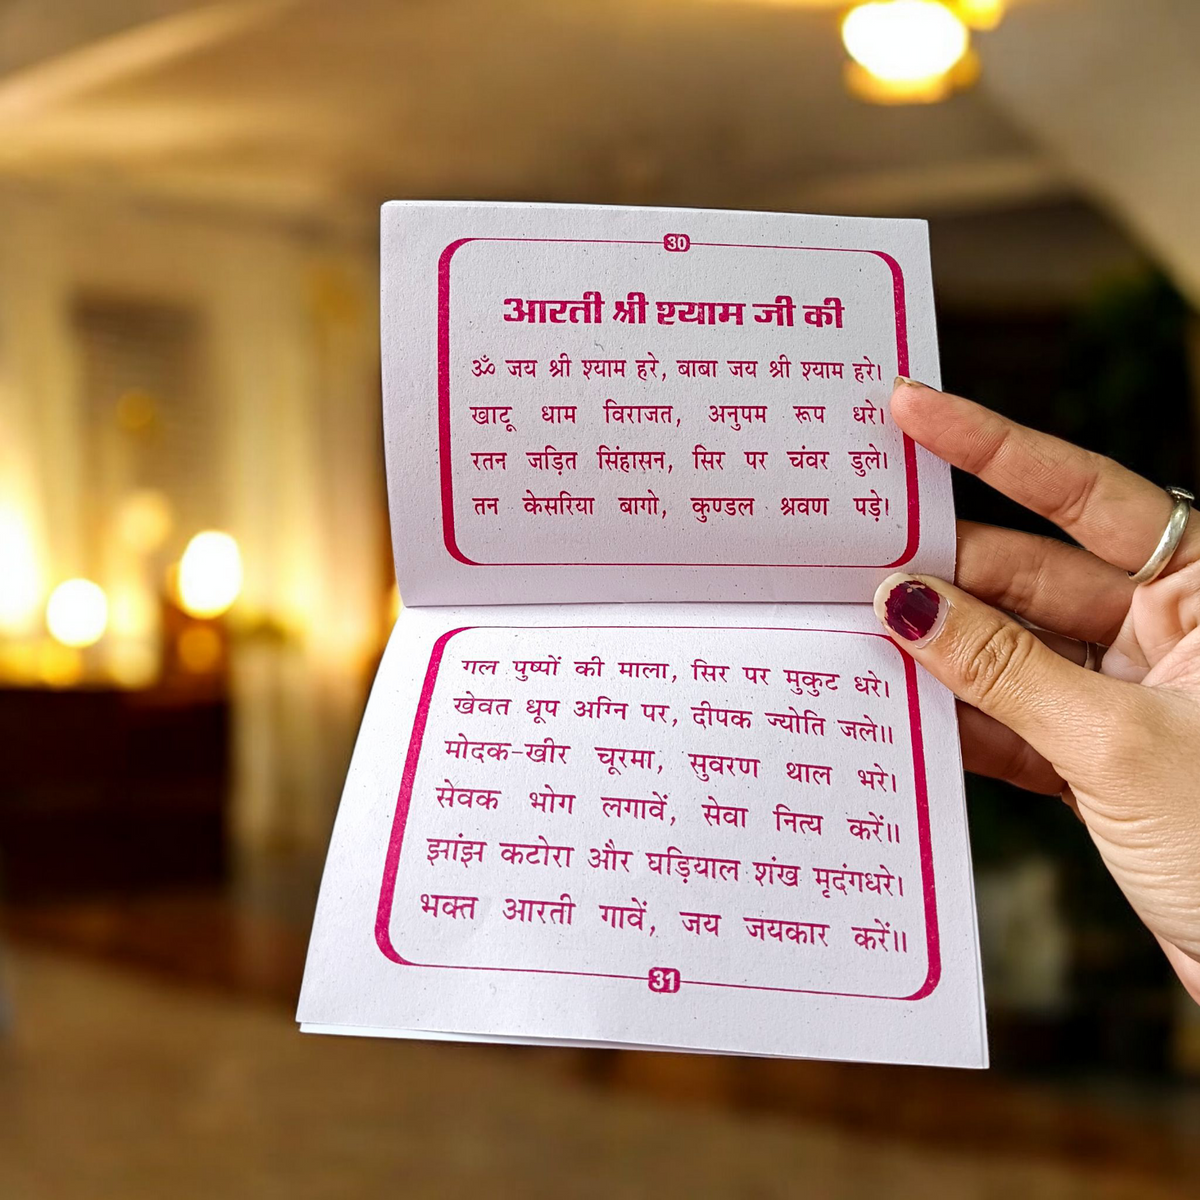 30
आरती श्री श्याम जी की
ॐ जय श्री श्याम हरे, बाबा जय श्री श्याम हरे।
खाटू धाम विराजत, अनुपम रूप धरे।
रतन जड़ित सिंहासन, सिर पर चंवर डुले।
तन केसरिया बागो, कुण्डल श्रवण पड़े।
गल पुष्पों की माला, सिर पर मुकुट धरे।
खेवत धूप अग्नि पर, दीपक ज्योति जले॥
मोदक-खीर चूरमा, सुवरण थाल भरे।
सेवक भोग लगावें, सेवा नित्य करें॥
झांझ कटोरा और घड़ियाल शंख मृदंगधरे।
भक्त आरती गावें, जय जयकार करें॥
31